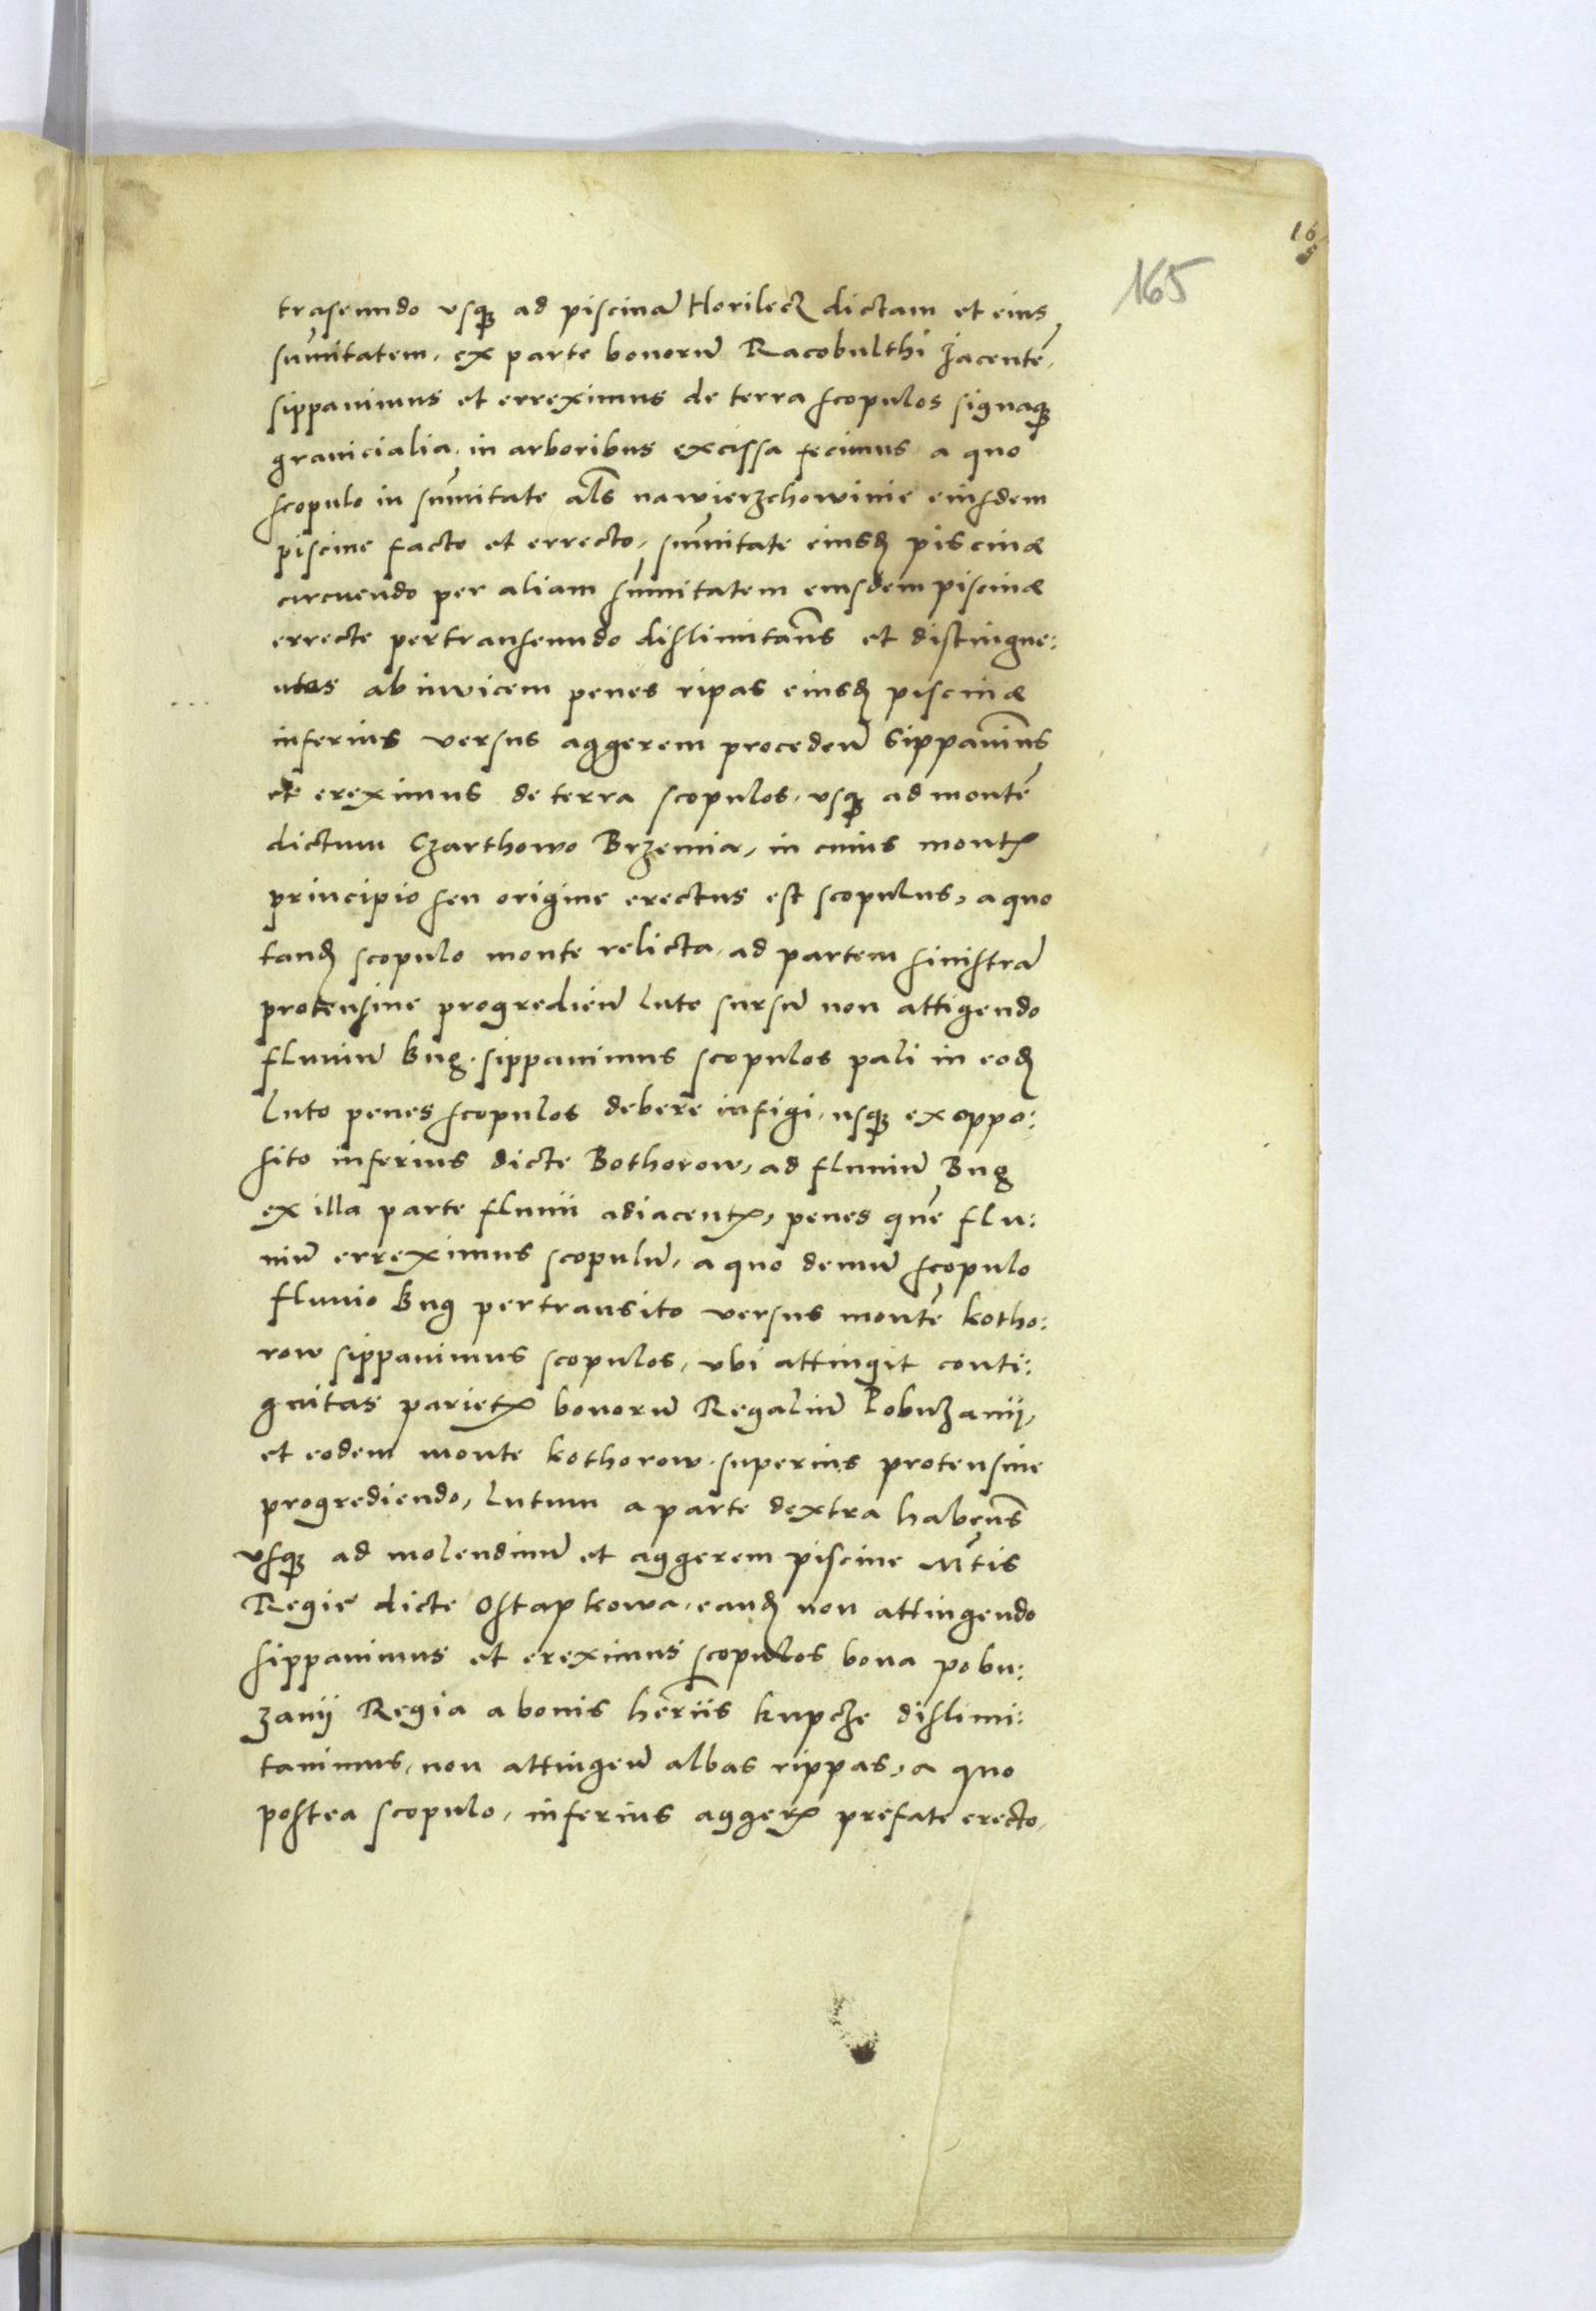 165
165
traseundo usq₃ ad piscinā Horilecz dictam et eius
sum̄itatem, ex parte bonorū Racobulthi Jacentē,
sippauimus et erreximus de terra scopulos signaq₃
granicialia, in arboribus excissa fecimus a quo
scopulo in sum̄itate al̄s nawierzchowinie eiusdem
piscine facto et errecto, sum̄itate eiusd̄ piscinæ
circuendo per aliam sum̄itatem eiusdem piscinæ
errecte pertranseundo dislimitan̄s et distingue:
ntes ab inuicem penes ripas eiusd̄ piscinæ
inferius versus aggerem procedeñ sippauim̄s
et ereximus de terra scopulos, usq₃ ad montē
dictum Czarthowo Brzemia, in cuius mont℮
principio seu origine erectus est scopulus, a quo
tand̄ scopulo monte relicta, ad partem sinistrā
protensiue progredieñ luto sursū non attigendo
fluuiū Bug. sippauimus scopulos pali in eod̄
luto penes scopulos debere infigi, usq₃ ex oppo:
sito inferius dicte Bothorow, ad fluuiū Bug
ex illa parte fluuii adiacent℮, penes quē flu:
uiū erreximus scopulū, a quo demū scopulo
fluuio Bug pertransito versus montē kotho:
row sippauimus scopulos, ubi attingit conti:
guitas pariet℮ bonorū Regaliū Pobuzanij,
et eodem monte kothorow superius protensiue
progrediendo, lutum a parte dextra haben̄s
usq₃ ad molendinū et aggerem piscine M̄tis
Regie dicte Ostapkowa, eand̄ non attingendo
sippauimus et ereximus scopulos bona pobu:
zanij Regia a bonis her̄iis kupcze dislimi:
tauimus, non attingeñ albas rippas, a quo
postea scopulo, inferius agger℮ prefate erecto,